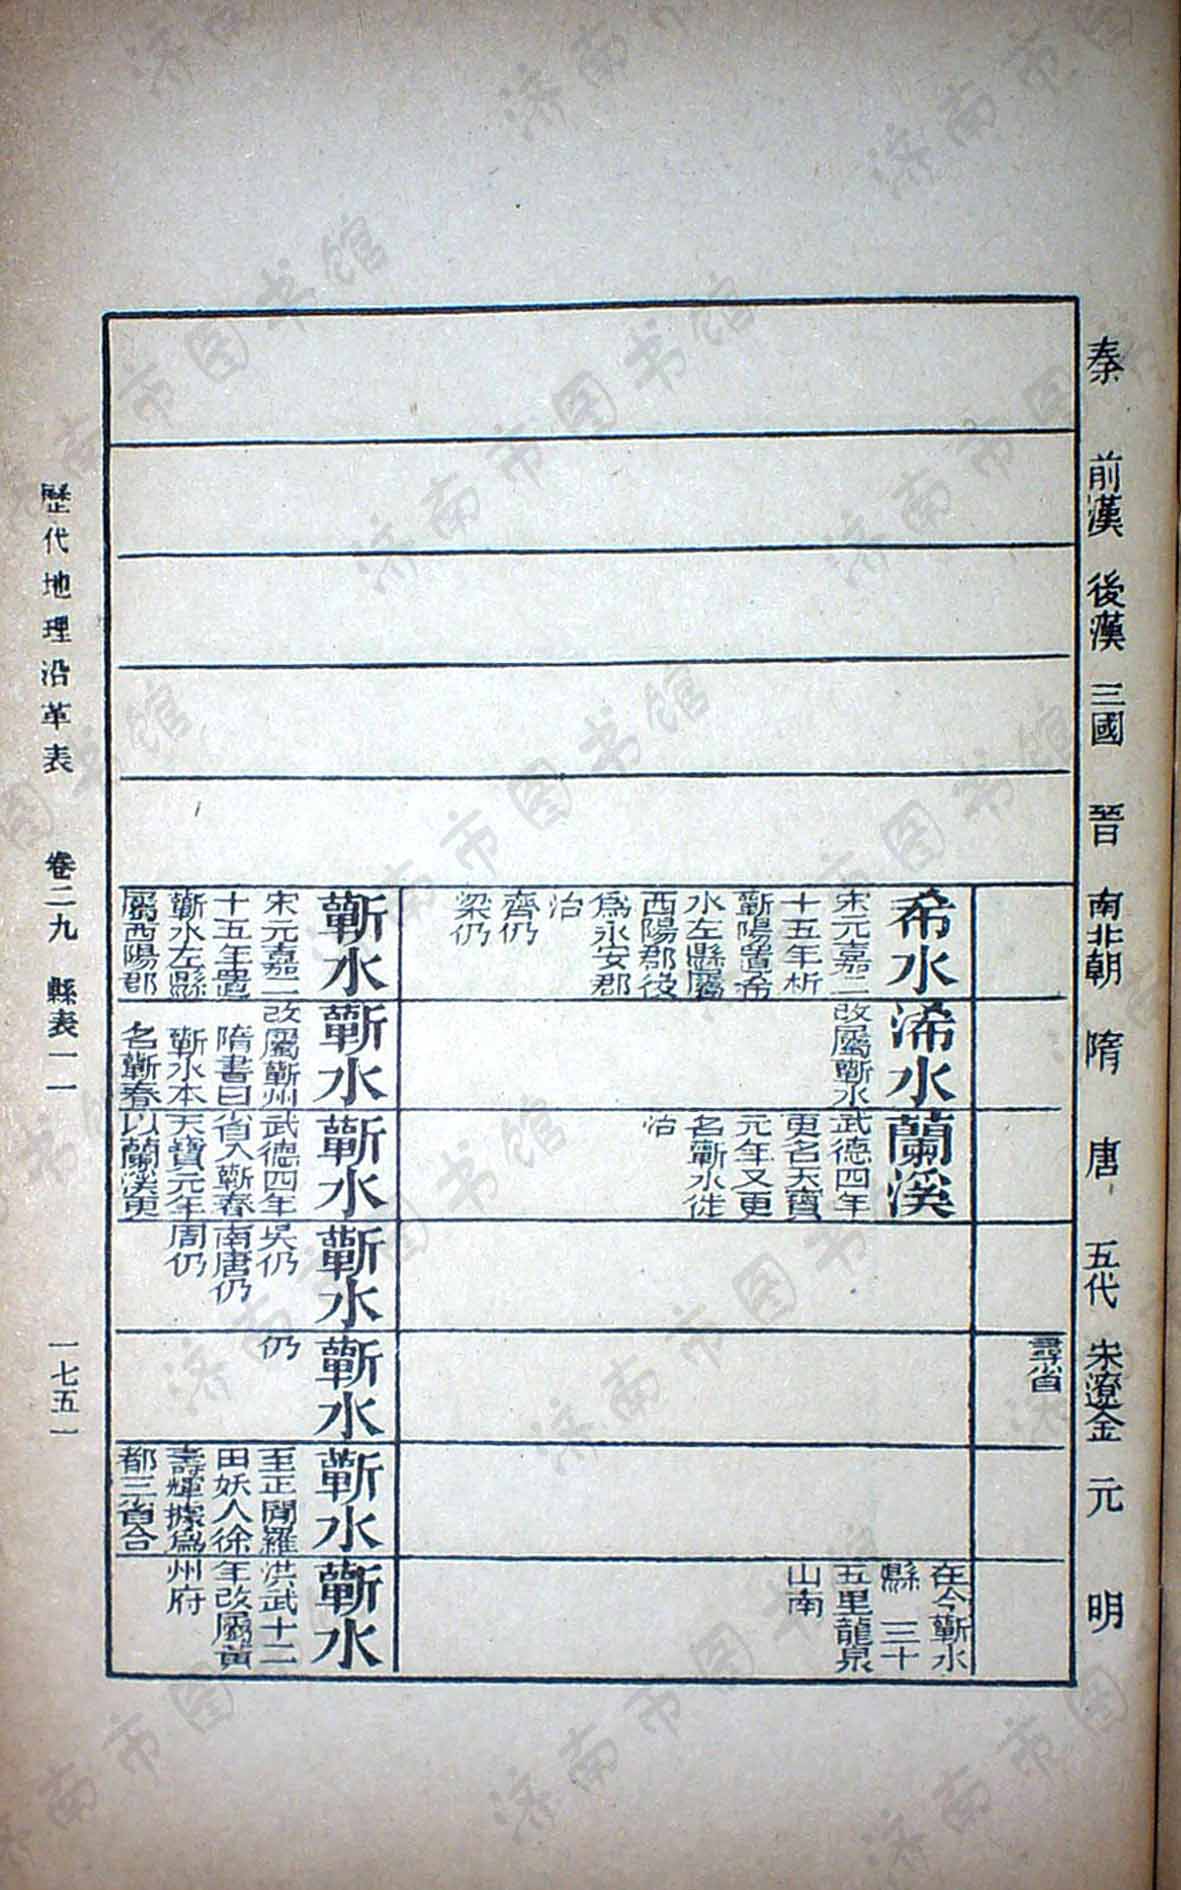 秦
前漢
後漢
三國
晉
南北朝
隋
唐
五代
宋遼金
元
明
尋省
希水
宋元嘉二
十五年析
蘄陽置希
水左縣屬
西陽郡後
爲永安郡
治
齊仍
梁仍
浠水
改屬蘄水
蘭溪
武德四年
更名天寶
元年又更
名蘄水徙
治
在今蘄水
縣 三十
五里龍泉
山南
蘄水
宋元嘉二
十五年置
蘄水左縣
屬西陽郡
蘄水
改屬蘄州
隋書曰
蘄水本
名蘄春
蘄水
武德四年
省入蘄春
天寶元年
以蘭溪更
蘄水
吳仍
南唐仍
周仍
蘄水
仍
蘄水
至正閒羅
田妖人徐
壽輝據爲
都三省合
蘄水
洪武十二
年改屬黃
州府
歷代地理沿革表 卷二九 縣表一一
一七五一
济南市图书馆